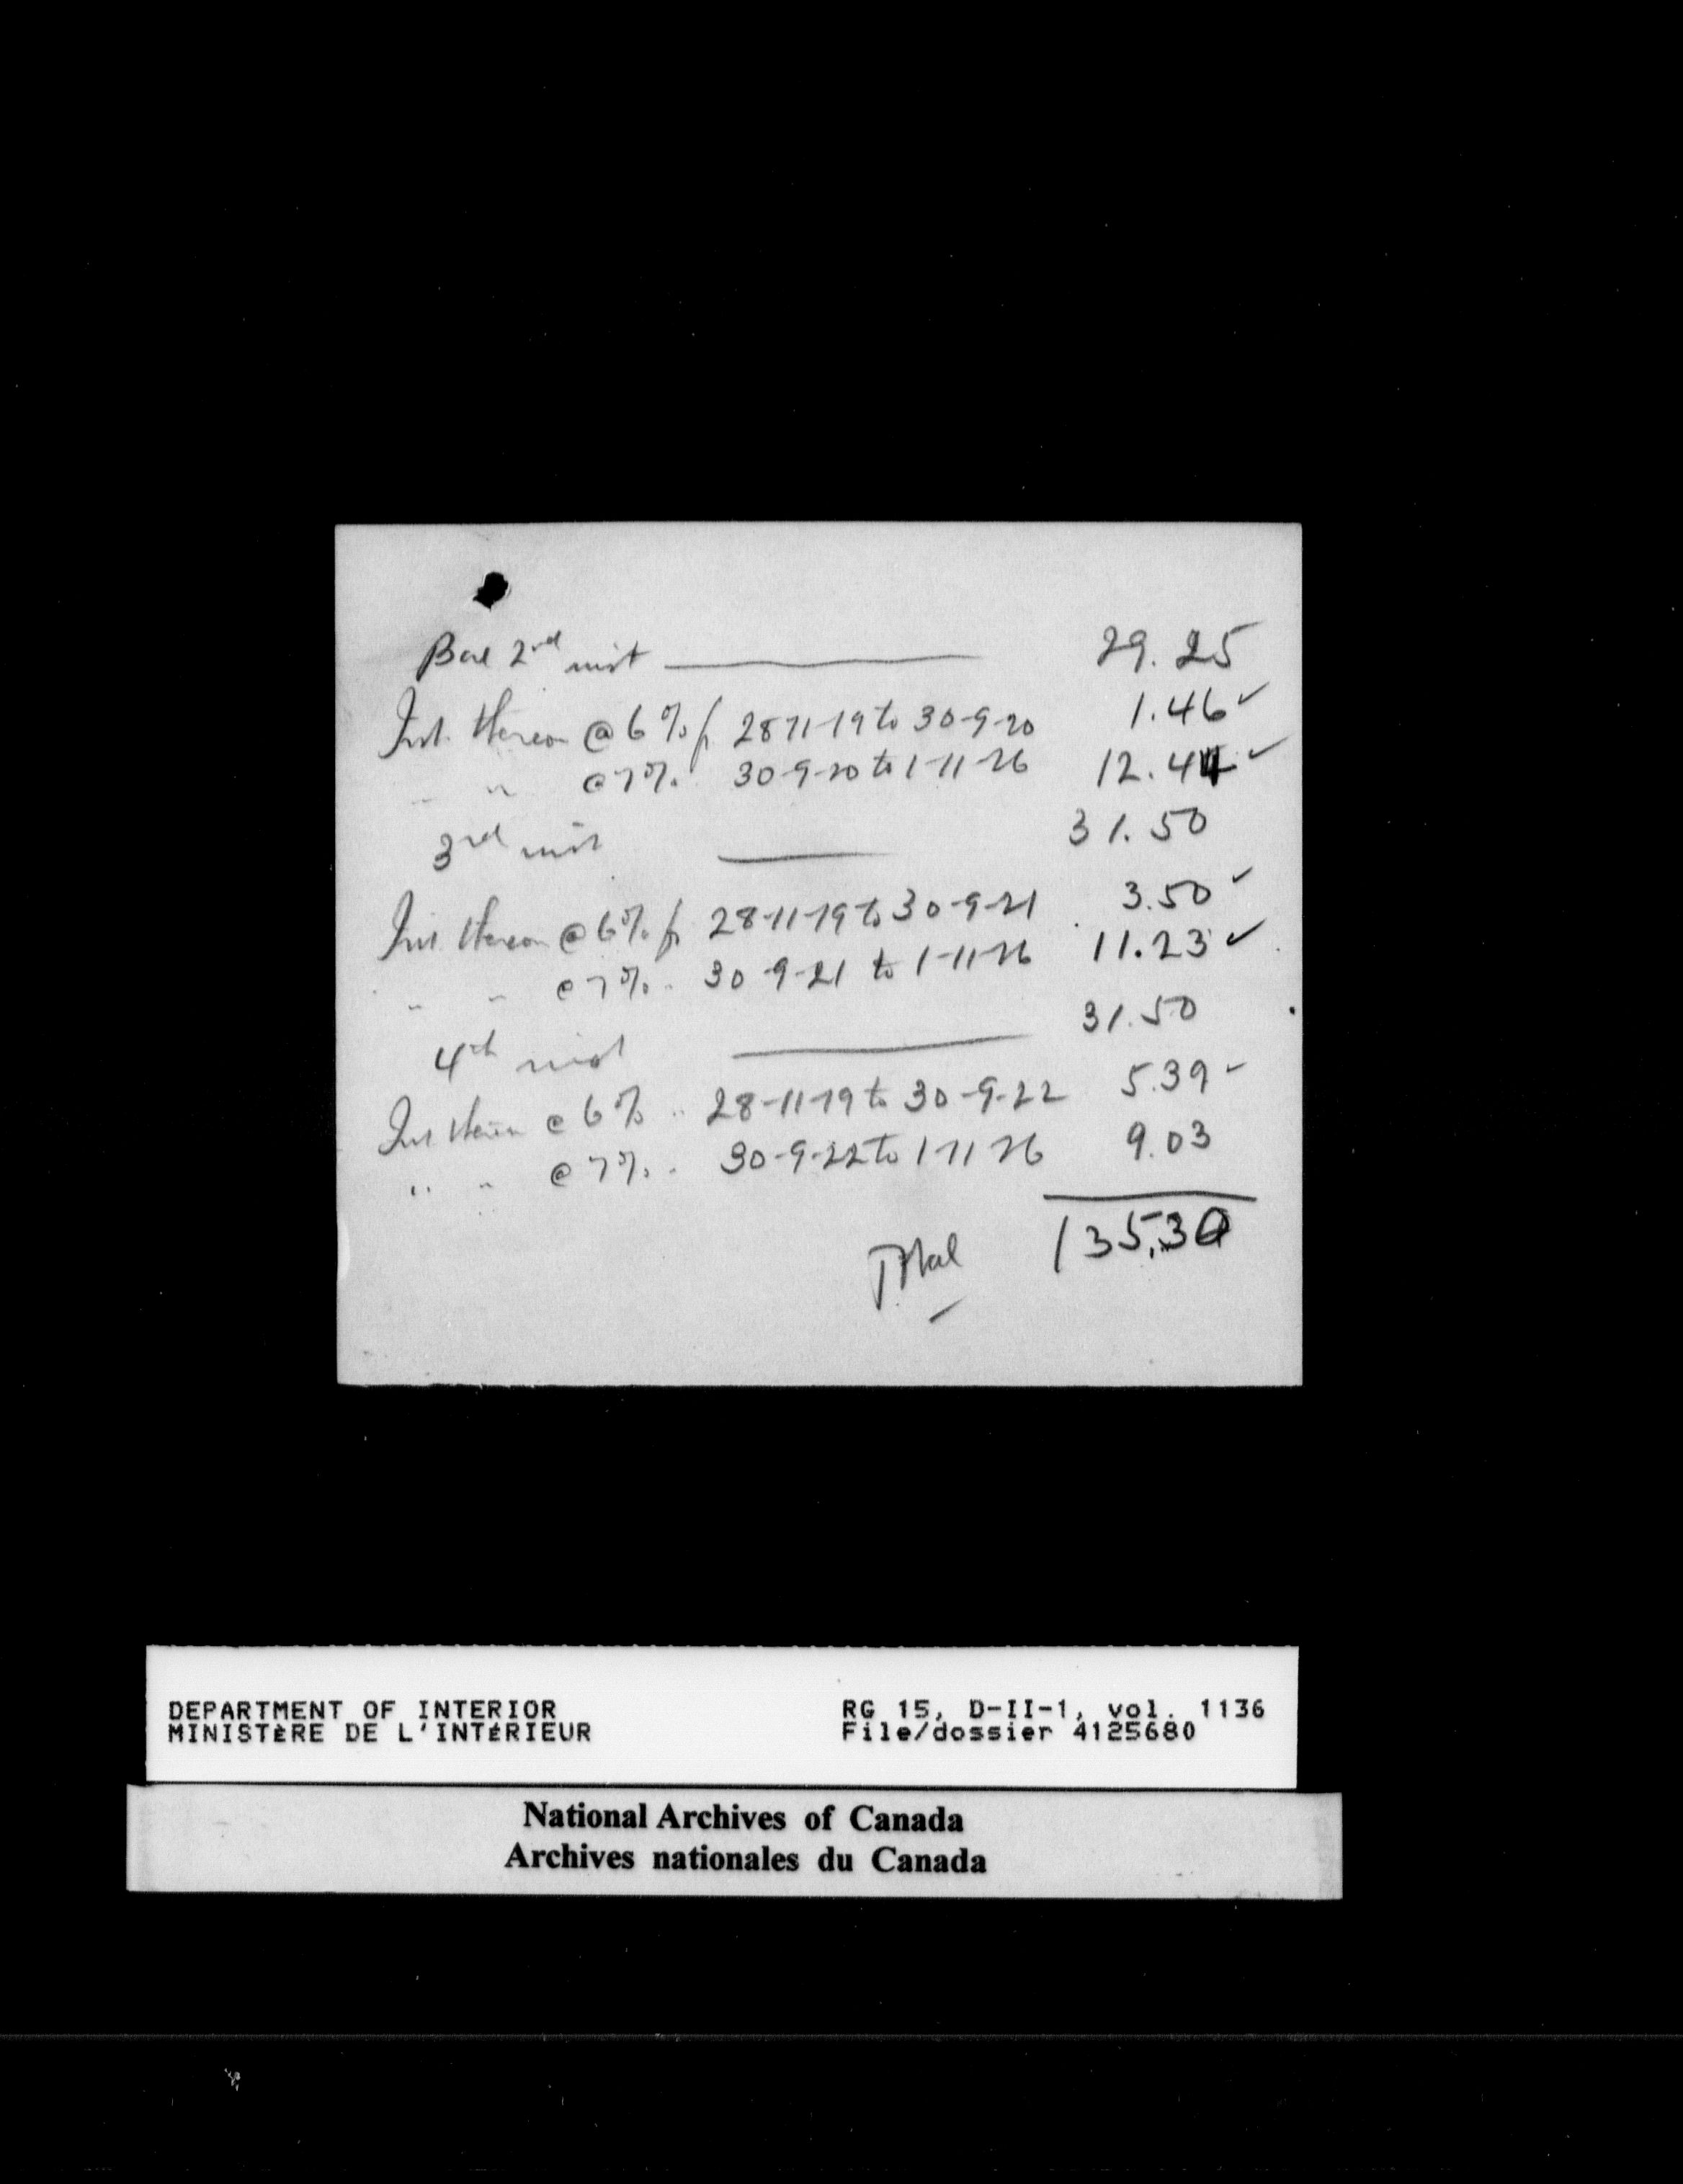 Bal 2nd inst — 29.25
Int. thereon @ 6% fr 28-11-19 to 30-9-20 1.46 ✓
" " @ 7% " 30-9-20 to 1-11-26 12.44 ✓
3rd inst — 31.50
Int. thereon @ 6% fr 28-11-19 to 30-9-21 3.50 ✓
" " @ 7% " 30-9-21 to 1-11-26 11.23 ✓
4th inst — 31.50
Int thereon @ 6% " 28-11-19 to 30-9-22 5.39 ✓
" " @ 7% " 30-9-22 to 1-11-26 9.03
Total 135.30
DEPARTMENT OF INTERIOR RG 15, D-II-1, vol. 1136
MINISTÈRE DE L'INTÉRIEUR File/dossier 4125680
National Archives of Canada
Archives nationales du Canada